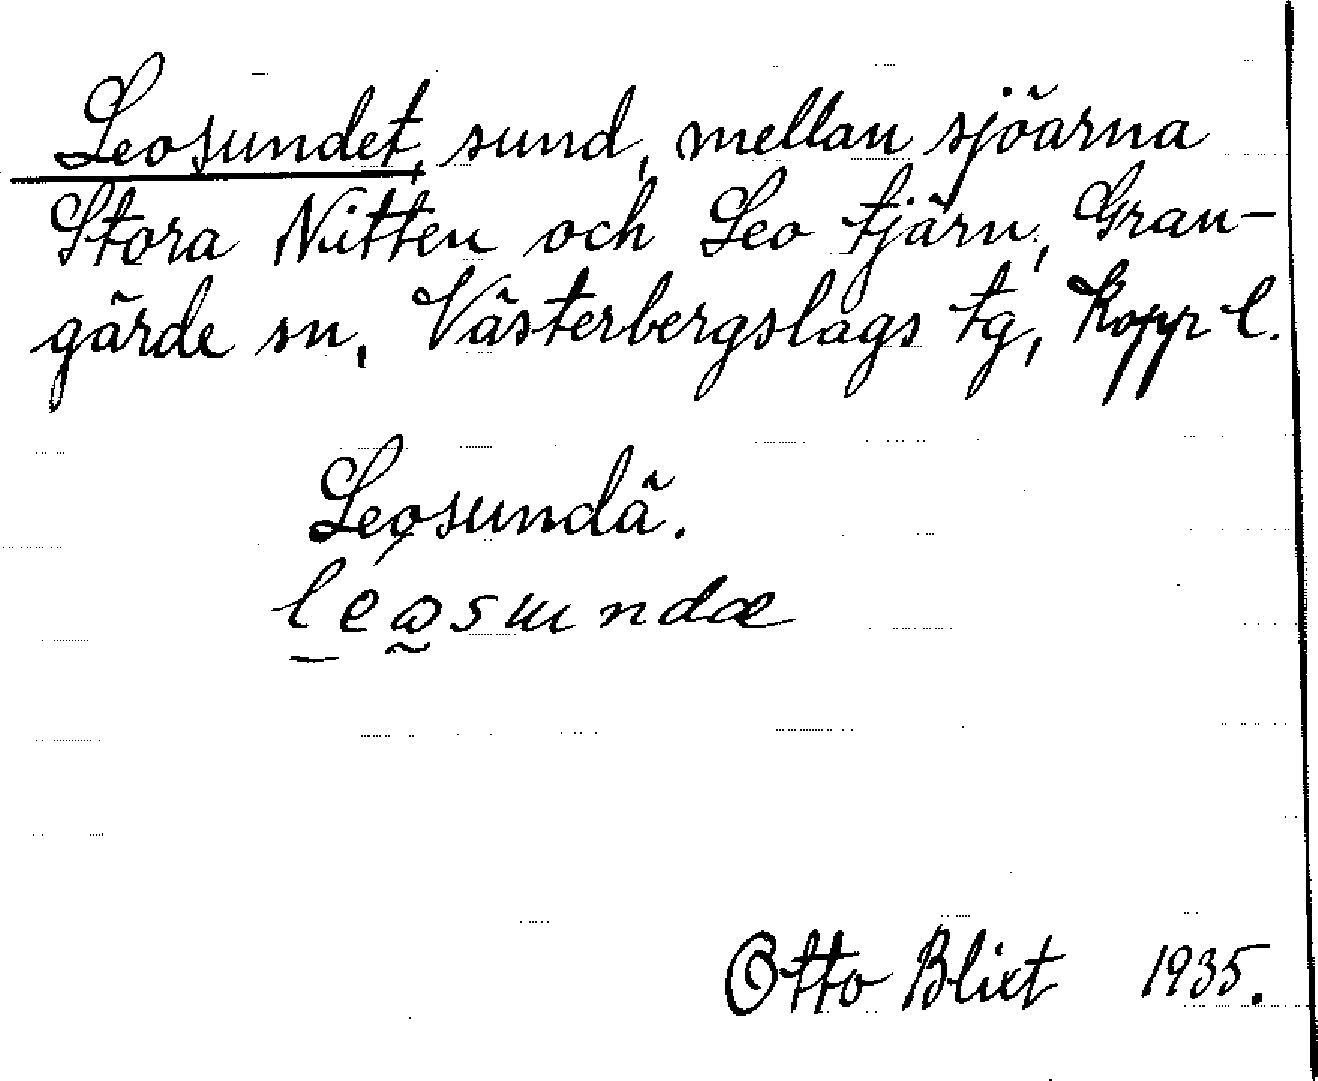 Leosundet, sund, mellan sjöarna
Stora Nitten och Leo tjärn, Gran-
gärde sn, Västerbergslags tg, Kopp l.
Leo̦sundä.
Otto Blixt 1935.